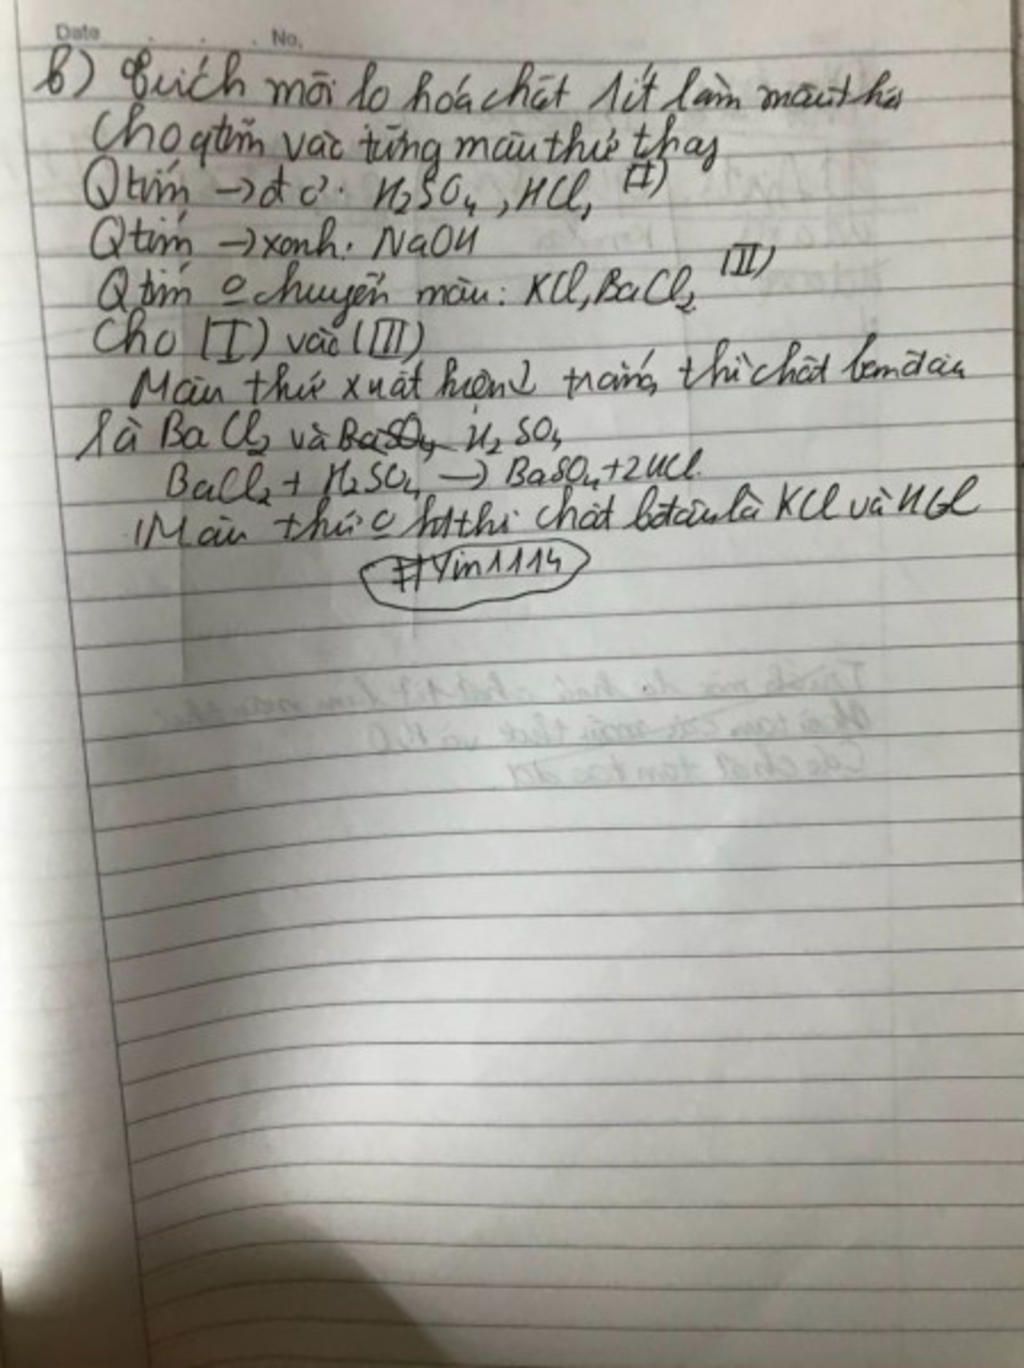 Date No.
b) Trích mỗi lọ hóa chất 1 ít làm mẫu thử
Cho qtím vào từng mẫu thử thấy
Qtím → đỏ: H₂SO₄, HCl, (I)
Qtím → xanh: NaOH
Qtím o chuyển màu: KCl, BaCl₂ (II)
Cho (I) vào (III)
Mẫu thử xuất hiện ↓ trắng thì chất ban đầu
là BaCl₂ và BaSO₄ H₂SO₄
BaCl₂ + H₂SO₄ → BaSO₄ + 2HCl
Mẫu thử o ht thì chất bđ là KCl và HCl
#Yin1114